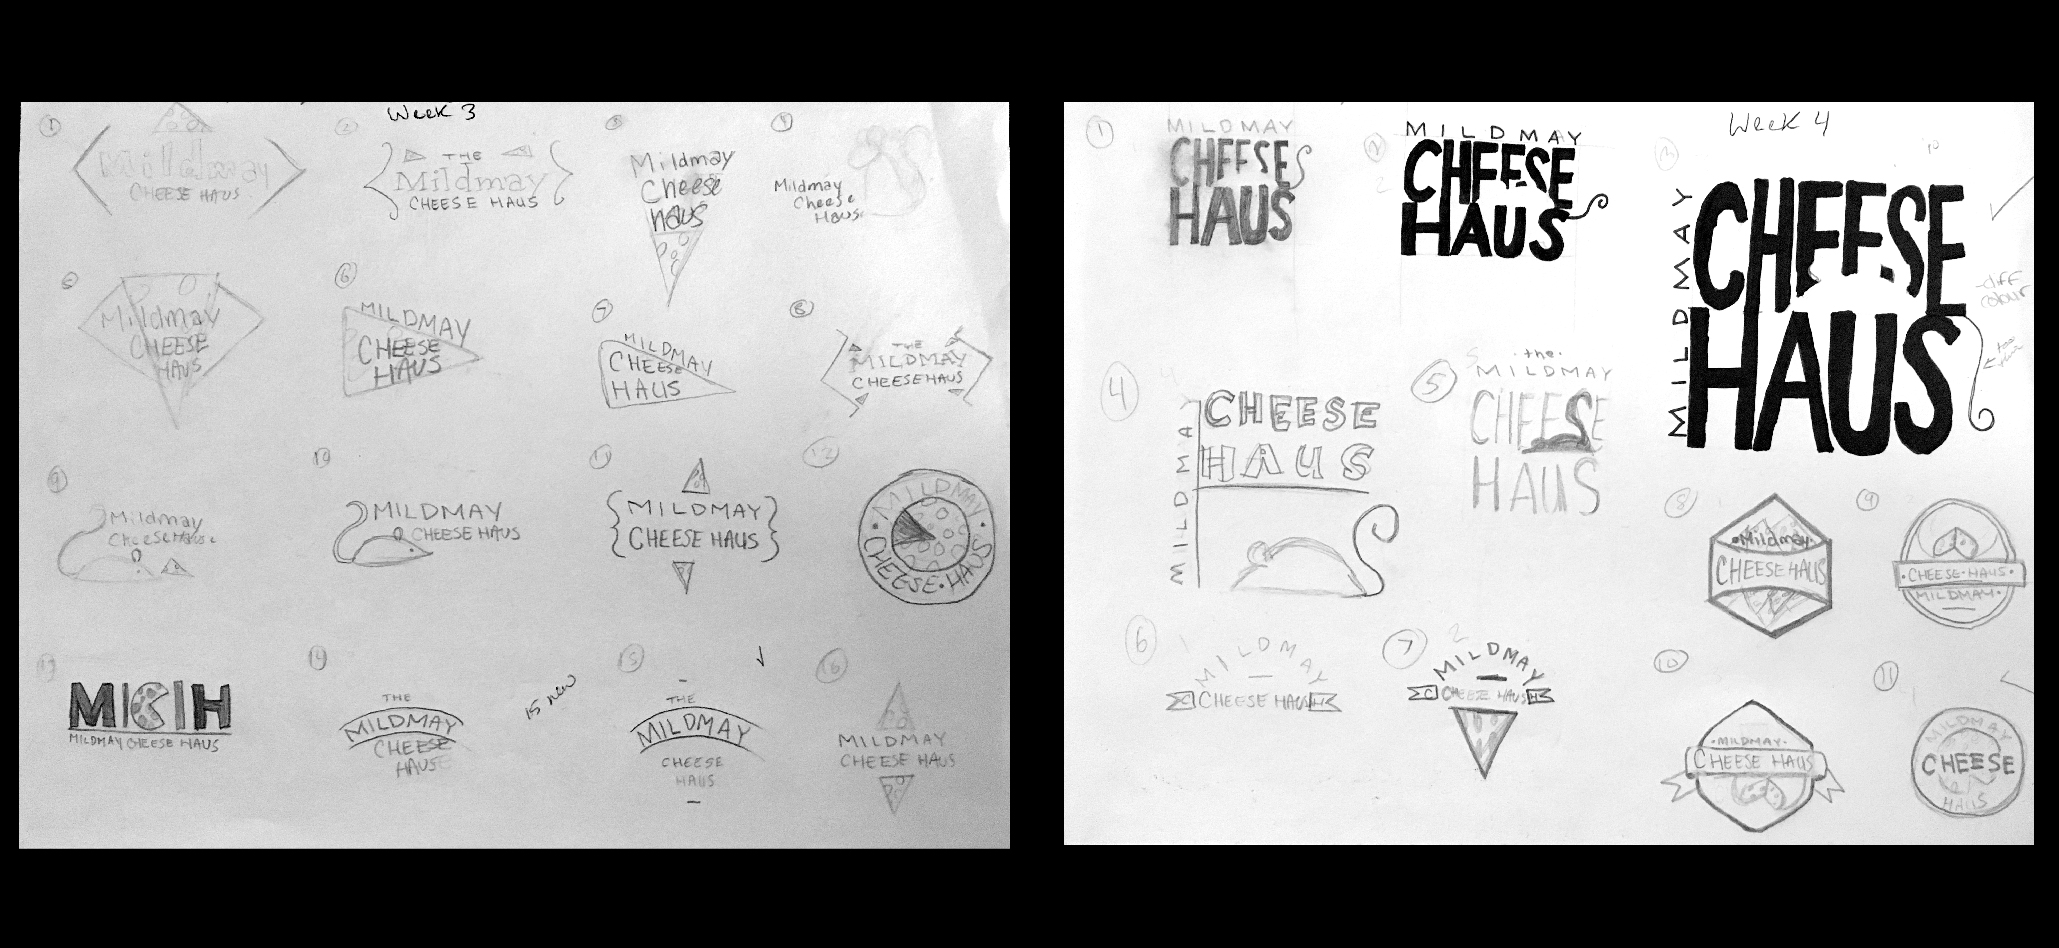 Week 3
1
Mildmay
CHEESE HAUS
2
THE
Mildmay
CHEESE HAUS
3
Mildmay
Cheese
Haus
4
Mildmay
Cheese
Haus
5
Mildmay
CHEESE
HAUS
6
MILDMAY
CHEESE
HAUS
7
MILDMAY
CHEESE
HAUS
8
THE
MILDMAY
CHEESE HAUS
9
Mildmay
Cheese Hause
10
MILDMAY
CHEESE HAUS
11
MILDMAY
CHEESE HAUS
12
MILDMAY
CHEESE•HAUS
13
M|C|H
MILDMAY CHEESE HAUS
14
THE
MILDMAY
CHEESE
HAUS
15 new
15
THE
MILDMAY
CHEESE
HAUS
16
MILDMAY
CHEESE HAUS
Week 4
1
MILDMAY
CHEESE
HAUS
2
MILDMAY
CHEESE
HAUS
3
MILDMAY
CHEESE
HAUS
diff
colour
4
MILDMAY
CHEESE
HAUS
5
the
MILDMAY
CHEESE
HAUS
6
MILDMAY
C CHEESE HAUS H
7
MILDMAY
C CHEESE HAUS H
8
•Mildmay•
CHEESE HAUS
9
•CHEESE•HAUS•
MILDMAY•
10
•MILDMAY•
CHEESE HAUS
11
MILDMAY
CHEESE
HAUS